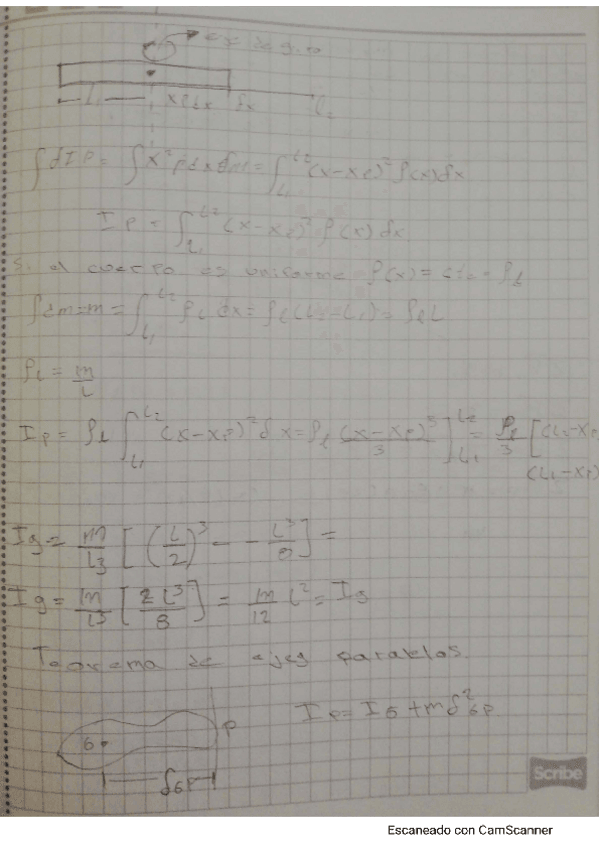 eje de giro
L₁ xp dx dx L₂
∫dIp = ∫x²ρ dx dm = ∫_{L₁}^{L₂} (x-xp)² ρ(x) dx
Ip = ∫_{L₁}^{L₂} (x-xp)² ρ(x) dx
Si el cuerpo es uniforme ρ(x) = cte = ρL
∫dm = m = ∫_{L₁}^{L₂} ρL dx = ρL(L₂-L₁) = ρL L
ρL = m/L
Ip = ρL ∫_{L₁}^{L₂} (x-xp)² dx = ρL (x-xp)³/3 ]_{L₁}^{L₂} = ρL/3 [(L₂-xp
(L₁-xp)
Ig = m/L3 [(L/2)³ - - L³/8] =
Ig = m/L3 [2L³/8] = m/12 L² = Ig
Teorema de ejes paralelos
P
Ip = IG + mδ²GP
G
δGP
Scribe
Escaneado con CamScanner